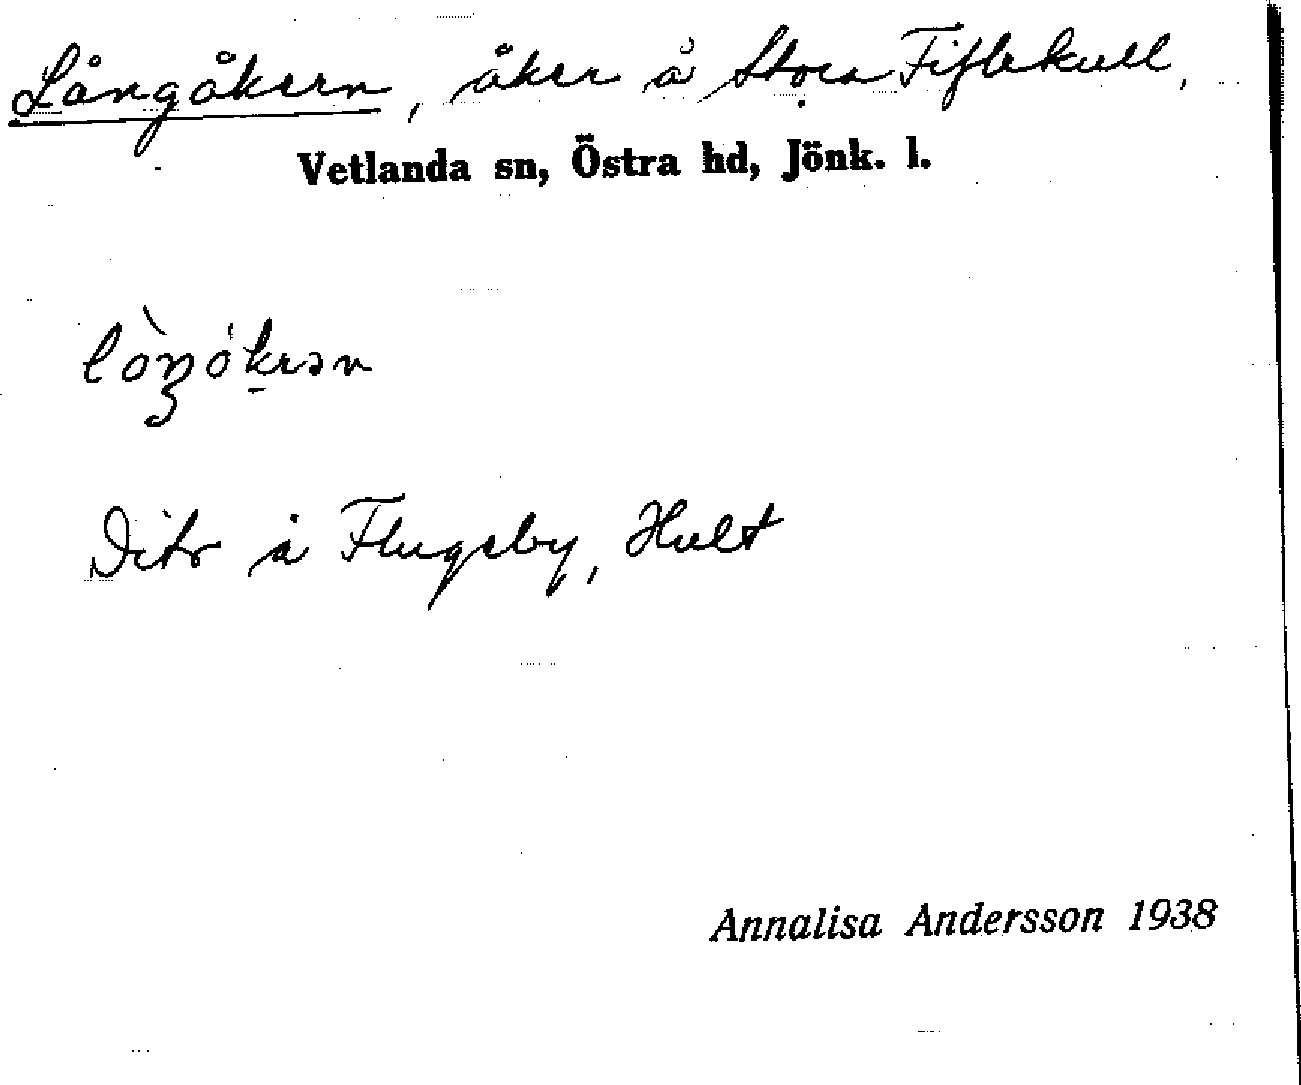 Långåkern, åker å Stora Fiflekull,
Vetlanda sn, Östra hd, Jönk. l.
lòŋókrən
Dito å Flugeby, Hult
Annalisa Andersson 1938